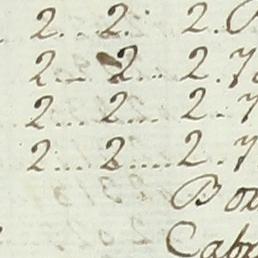 2.. 2.. 2.
2... 2... 2.7
2.... 2.... 2.7
2.... 2..... 2.7
Bo
Cab